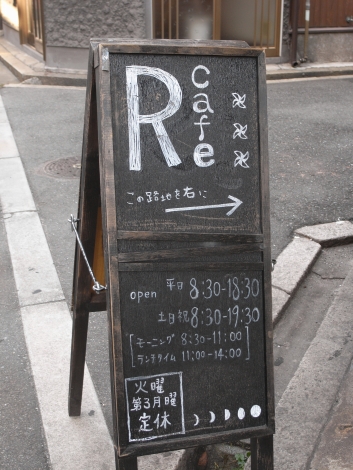 R cafe
この路地を右に
open 平日 8:30-18:30
土日祝 8:30-19:30
[モーニング 8:30-11:00]
[ランチタイム 11:00-14:00]
火曜
第3月曜
定休